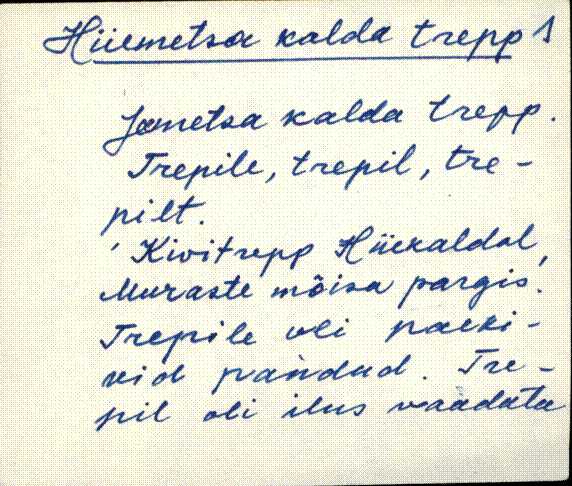 Hiiemetsa kalda trepp 1
Jõmetsa kalda trepp.
Trepile, trepil, tre-
pilt.
Kivitrepp Hiiekaldal,
Muraste mõisa pargis.
Trepile oli paeki-
vid pandud. Tre-
pil oli ilus vaadata